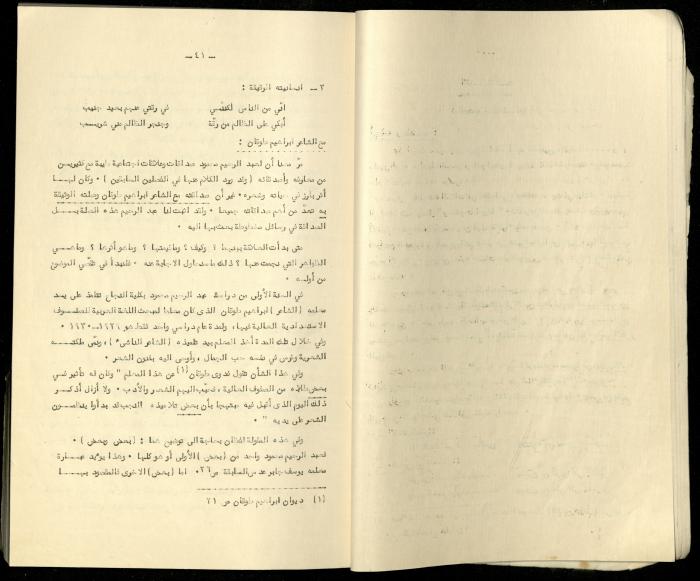 — ٤١ —
٣ — انسانيته الوثيقة :
انّي من الناس لكنني في رقتي عنهم بعيد جنيب
أبكي على الظالم من رقّة وخنجر الظالم مني خضيب
مع الشاعر ابراهيم طوقان :
مرّ معنا أن لعبد الرحيم محمود صداقات وعلاقات اجتماعية طيبة مع كثيرين
من معارفه وأصدقائه ( وقد ورد الكلام عنها في الفصلين السابقين ) ٠ وكان لها
أثر بارز في حياته وشعره ٠ غير أن صداقته مع الشاعر ابراهيم طوقان وصلته الوثيقة
به تعدّ من أهم صداقاته جميعا ٠ ولقد أثبت لنا عبد الرحيم هذه الصلة
الصداقة في رسائل مخطوطة بعث بها اليه ٠
متى بدأت العلاقة بينهما ؟ وكيف ؟ وما قيمتها ؟ وما هو أثرها ؟ وما هي
الظواهر التي نجمت عنها ؟ ذلك ما سنحاول الاجابة عنه ٠ فلنبدأ في تقصّي الموضوع
من أوله ٠
في السنة الأولى من دراسة عبد الرحيم محمود بكلية النجاح تتلمذ على يد
معلمه ( الشاعر ) ابراهيم طوقان الذي كان معلما لمبحث اللغة العربية للصفوف
الاستعدادية العالية فيها، ولمدة عام دراسي واحد فقط هو ١٩٢٩—١٩٣٠ ٠
وفي خلال تلك المدة أخذ المعلم بيد تلميذه ( الشاعر الناشيء ) ، ونمّى ملكته
الشعرية وغرس في نفسه حب الجمال ، وأوحى اليه بفنون الشعر ٠
وفي هذا الشأن تقول فدوى طوقان (١) عن هذا المعلم " وكان له تأثير في
بعض طلابه من الصفوف العالية ، فحبّب اليهم الشعر والأدب ٠ ولا أزال أذكر
ذلك اليوم الذى أقبل فيه مبتهجا بأن بعض تلاميذه النجب قد بدأوا
الشعر على يديه " ٠
وفي هذه المقولة لفظان بحاجة الى توضيح هما : ( بعض وبعض ) ٠
فعبد الرحيم محمود واحد من ( بعض ) الأولى أو هو كلها ٠ وهذا يؤيد عبارة
معلمه يوسف جابر عدس السابقة ص ٢٦ ٠ اما ( بعض ) الاخرى فالمقصود بها
(١) ديوان ابراهيم طوقان ص ٢١